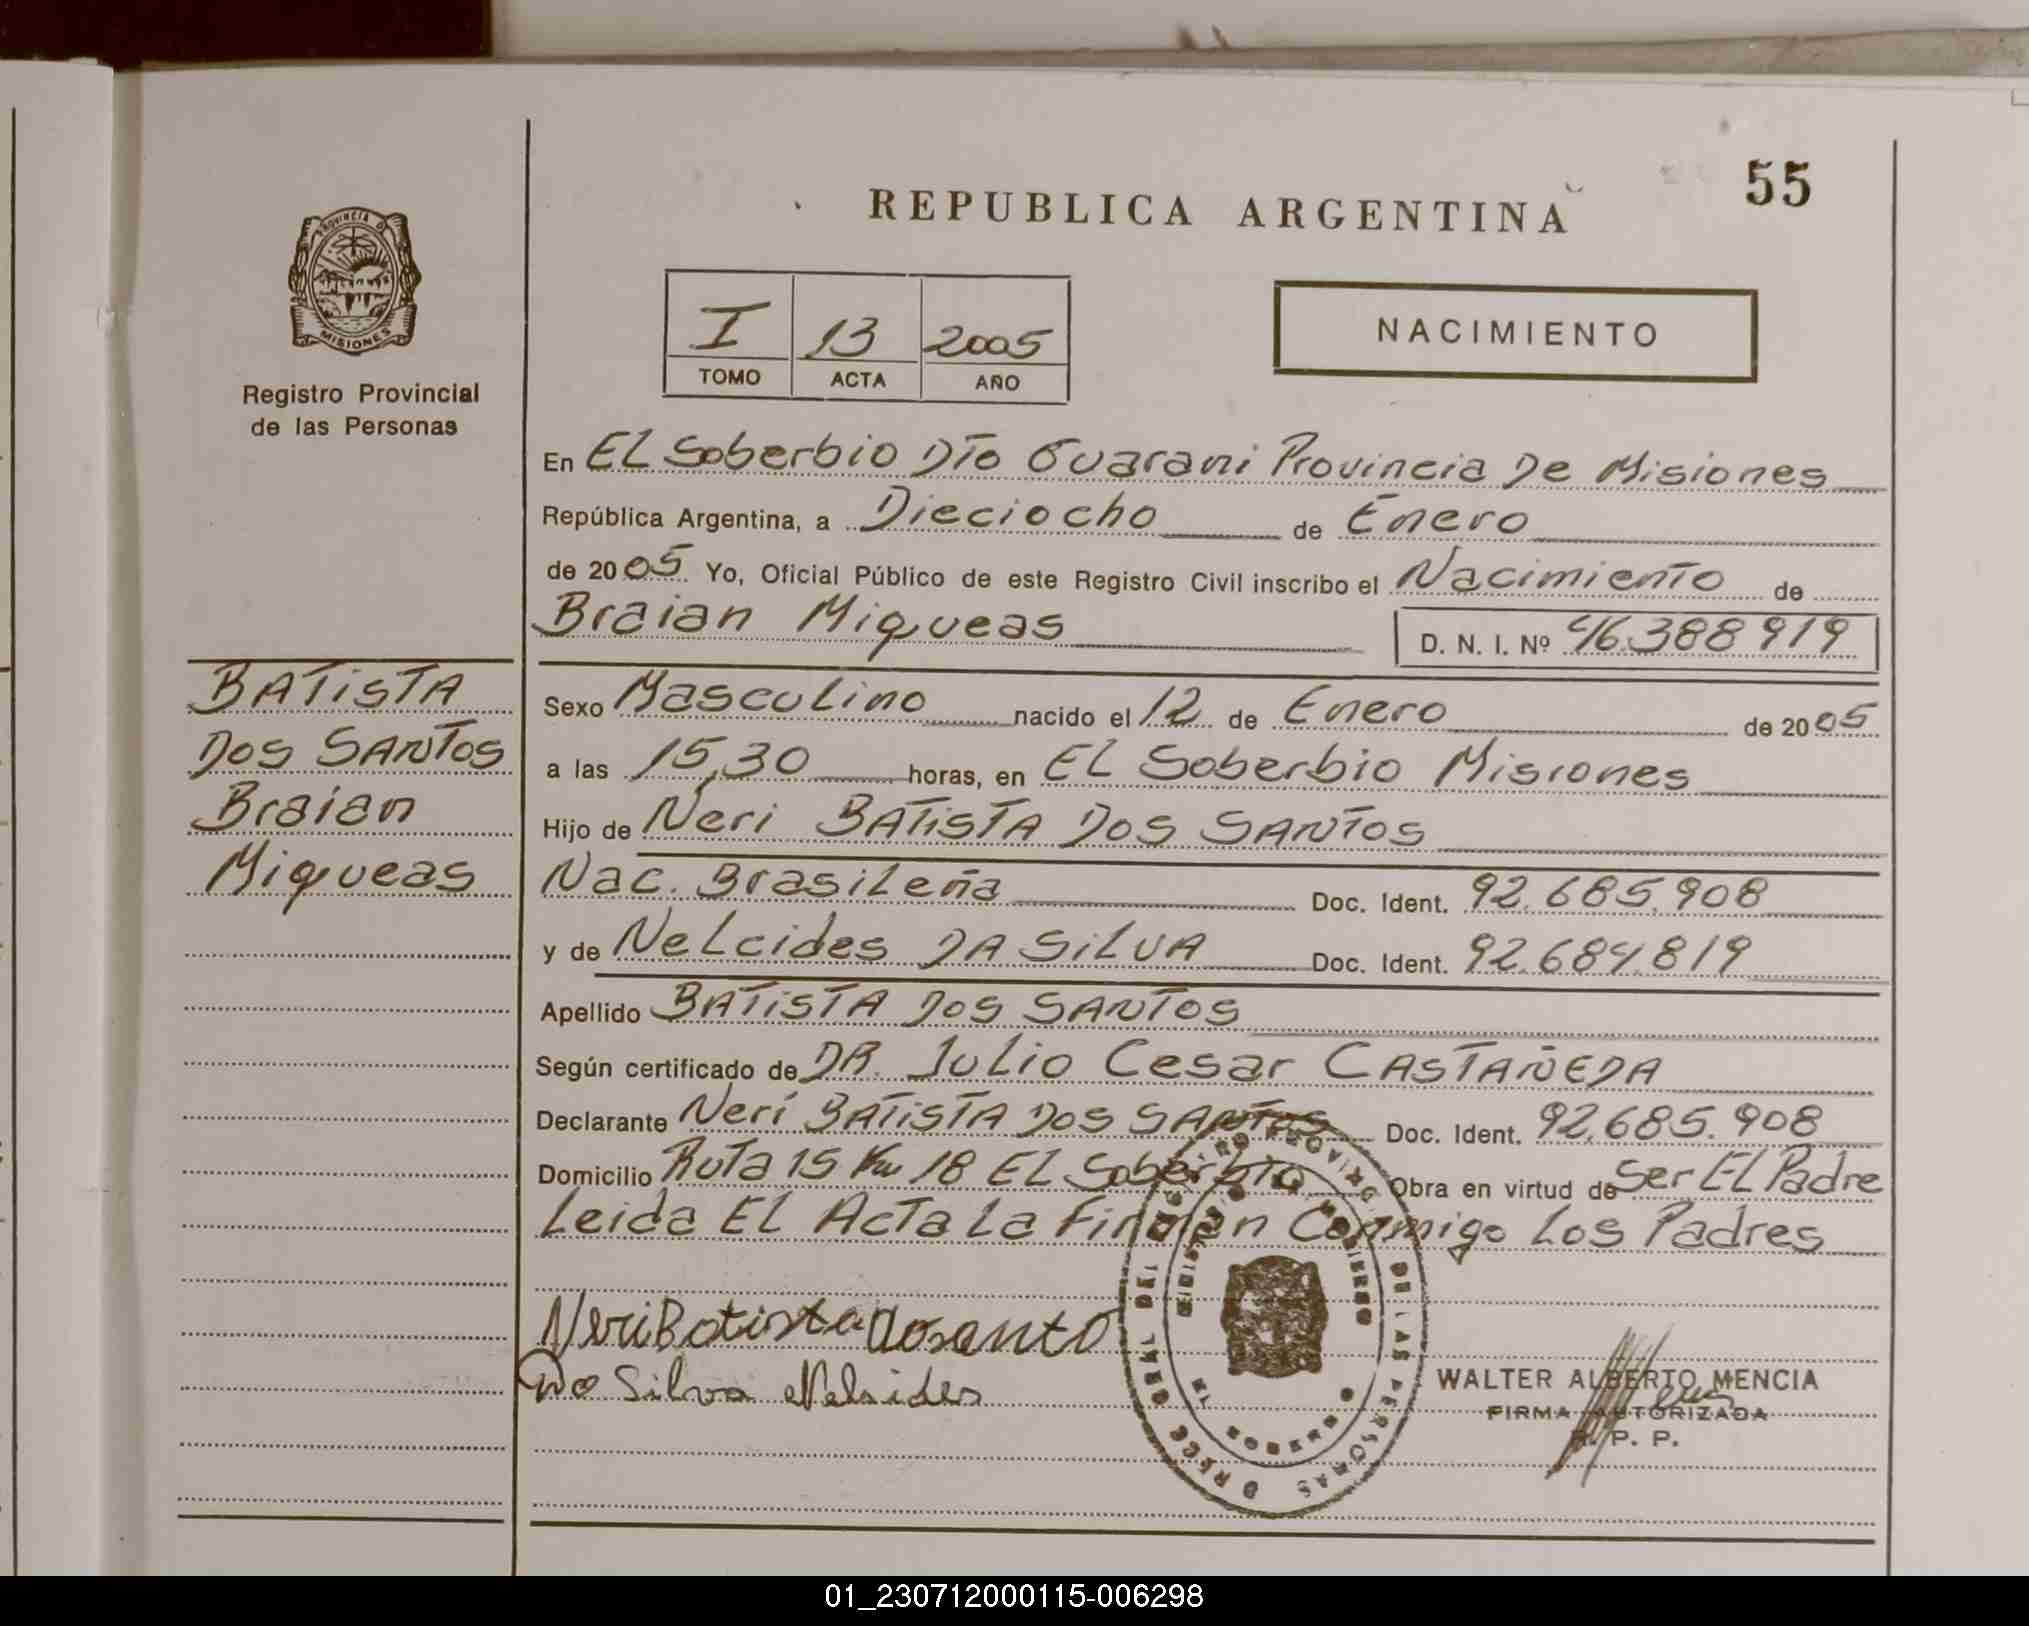 55
REPUBLICA ARGENTINA
PROVINCIA DE
MISIONES
Registro Provincial
de las Personas
I 13 2005
TOMO ACTA AÑO
NACIMIENTO
En EL Soberbio DTo Guarani Provincia De Misiones
República Argentina, a Dieciocho de Enero
de 2005 Yo, Oficial Público de este Registro Civil inscribo el Nacimiento de
Braian Miqueas D. N. I. Nº 46.388919
BATISTA
DOS SANTOS
Braian
Miqueas
Sexo Masculino nacido el 12 de Enero de 2005
a las 15,30 horas, en EL Soberbio Misiones
Hijo de Neri BATISTA DOS SANTOS
Nac. Brasileña Doc. Ident. 92.685.908
y de NeLcides DA SILVA Doc. Ident. 92.684.819
Apellido BATISTA DOS SANTOS
Según certificado de DR. Julio Cesar CASTAÑEDA
Declarante Neri BATISTA DOS SANTOS Doc. Ident. 92.685.908
Domicilio Ruta 15 Km 18 EL Soberbio Obra en virtud de Ser EL Padre
Leida EL Acta La Firman Conmigo Los Padres
Neri Batista dosanto
Da Silva Nelsides
DIREC GRAL DEL REGISTRO PROVINCIAL DE LAS PERSONAS
MINISTERIO DE GOBIERNO
WALTER ALBERTO MENCIA
FIRMA AUTORIZADA
R. P. P.
01_230712000115-006298